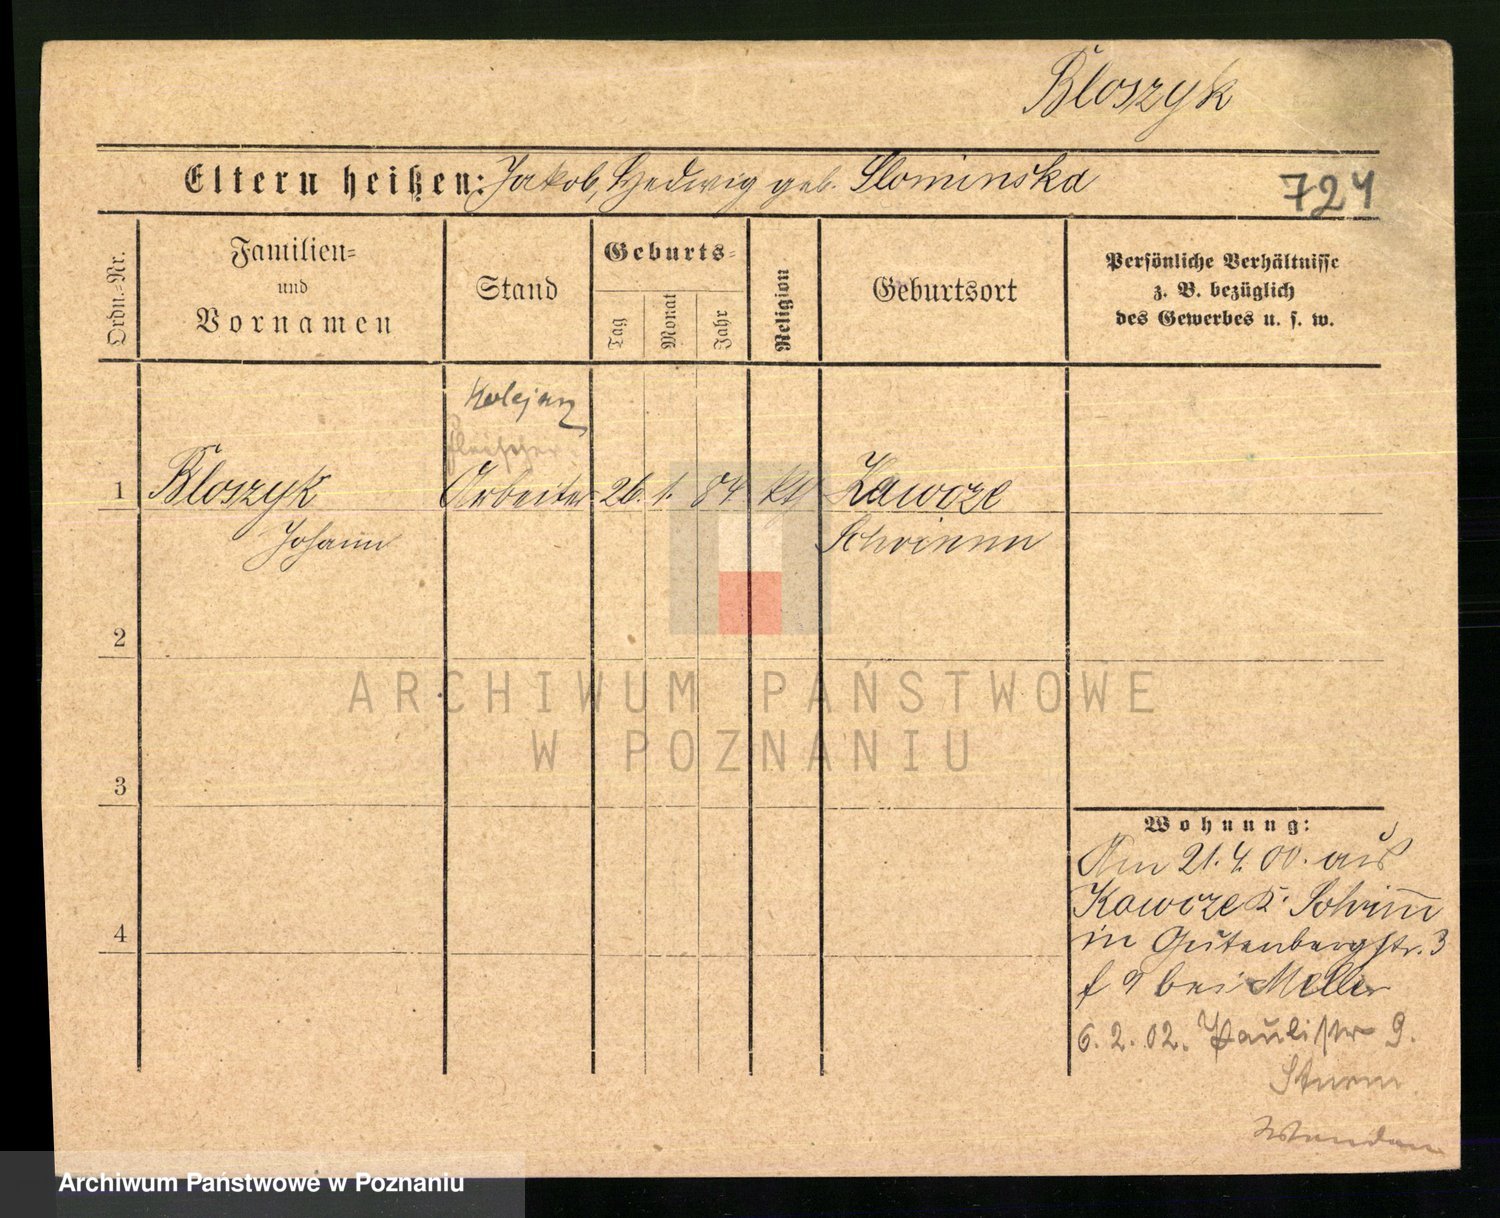 Bloszyk
Eltern heißen: Jakob, Hedwig geb. Slominska
724
Ordn.-Nr.
Familien-
und
Vornamen
Stand
Geburts-
Tag
Monat
Jahr
Religion
Geburtsort
Persönliche Verhältnisse
z. B. bezüglich
des Gewerbes u. s. w.
Kolejarz
Fleischer
1 Bloszyk Arbeiter 26. 1. 84 kth Kawcze
Johann Schrimm
2
3
4
ARCHIWUM PAŃSTWOWE
W POZNANIU
Wohnung:
Am 21.4.00. aus
Kawcze K. Schrimm
in Gutenbergstr. 3
bei Meller
6.2.02. Paulistr 9.
Sturm
Wenden
Archiwum Państwowe w Poznaniu